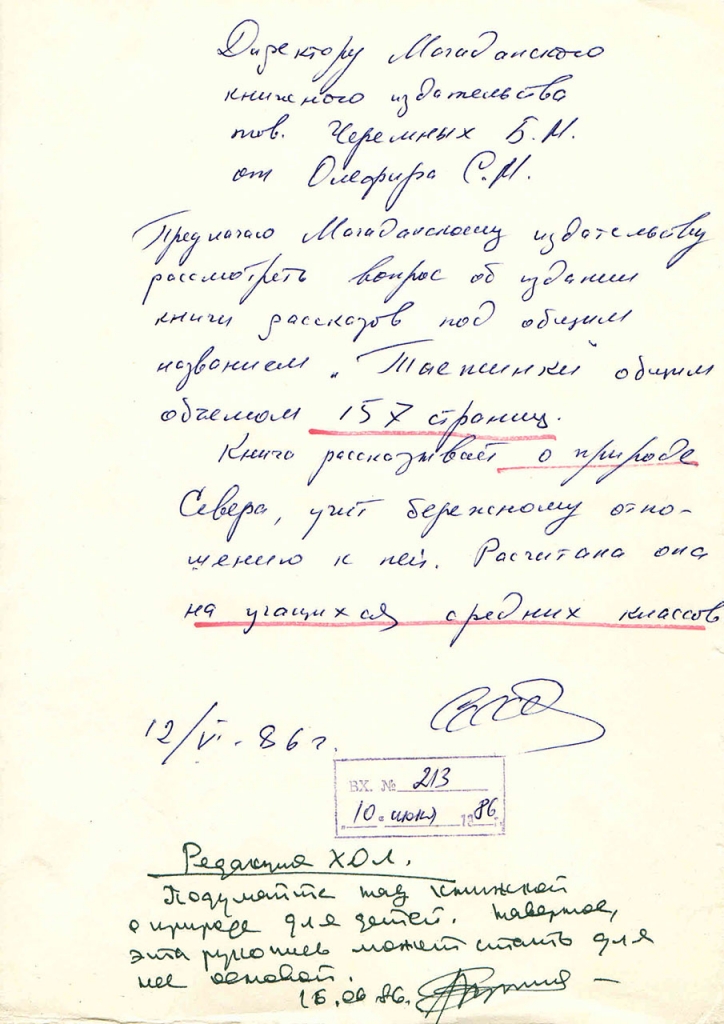 Директору Магаданского
книжного издательства
тов. Черемных Б.М.
от Олефира С.М.
Предлагаю Магаданскому издательству
рассмотреть вопрос об издании
книги рассказов под общим
названием „Таежинки" общим
объемом 157 страниц.
Книга рассказывает о природе
Севера, учит бережному отно-
шению к ней. Расчитана она
на учащихся средних классов
12/VI-86 г.
ВХ. № 213
„10" июня 1986.
Редакция ХОЛ.
Подумайте над книжкой
о природе для детей. Наверное,
эта рукопись может стать для
нее основой.
16.06.86.